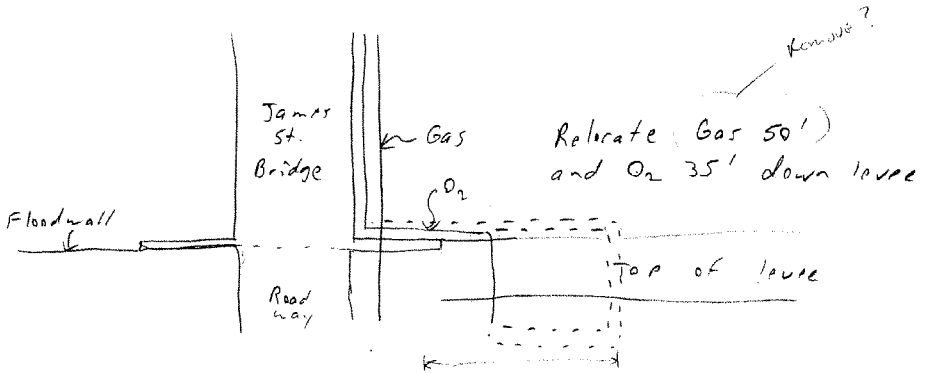 Remove?
James
St.
Bridge
Gas
Relocate (Gas 50')
and O2 35' down levee
O2
Floodwall
Top of levee
Road
way